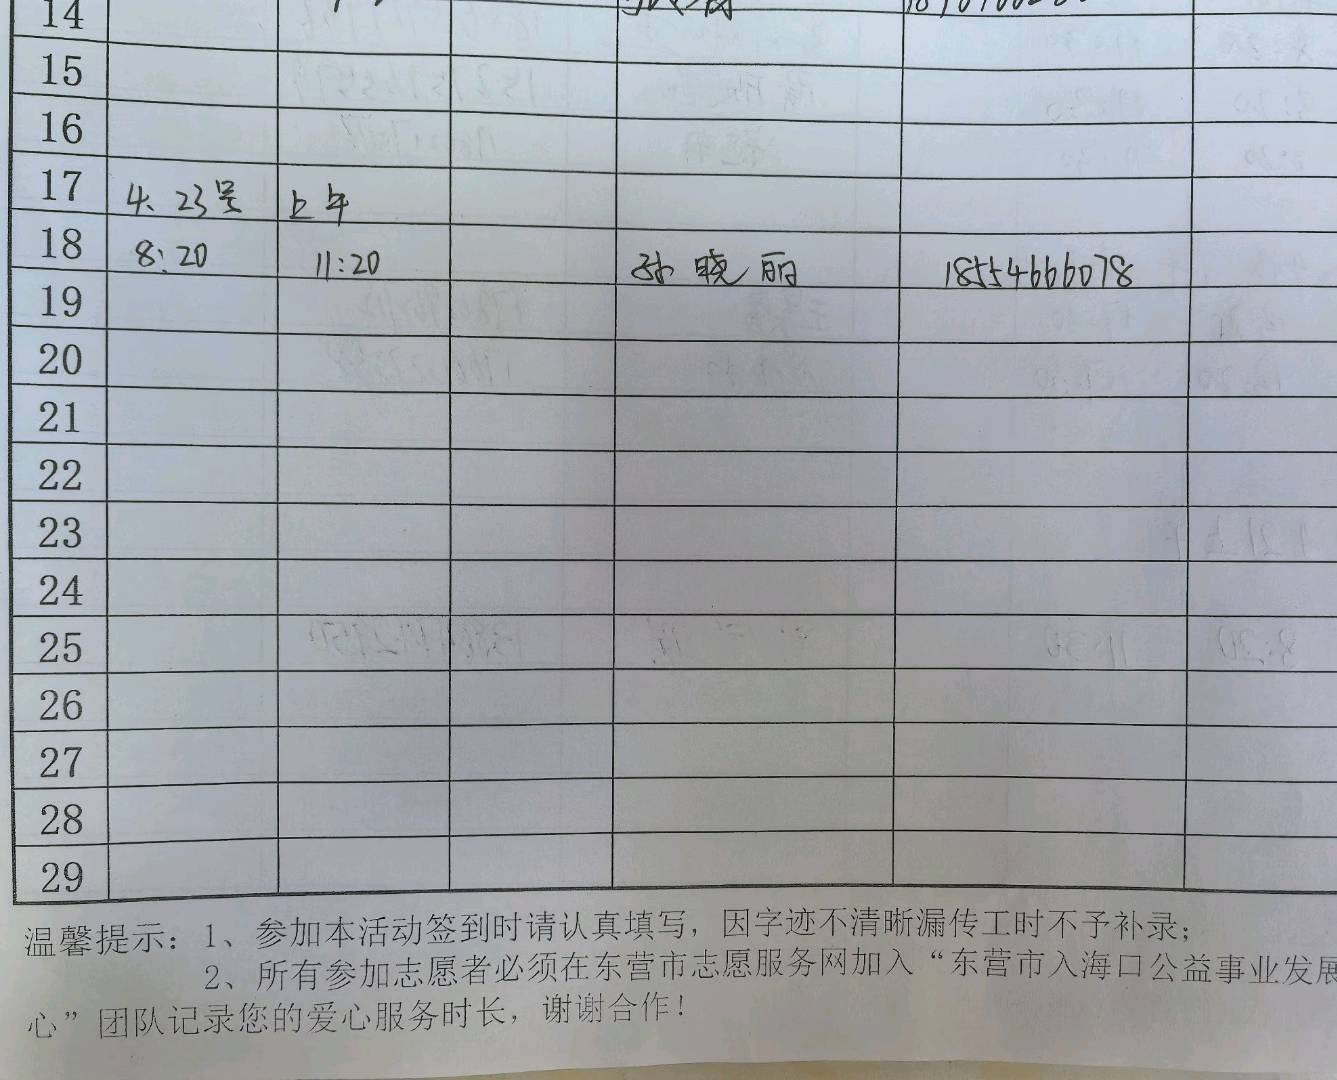 14
15
16
17 4、23号 上午
18 8:20 11:20 孙晓丽 18554666078
19
20
21
22
23
24
25
26
27
28
29
温馨提示：1、参加本活动签到时请认真填写，因字迹不清晰漏传工时不予补录；
2、所有参加志愿者必须在东营市志愿服务网加入“东营市入海口公益事业发展
心”团队记录您的爱心服务时长，谢谢合作！